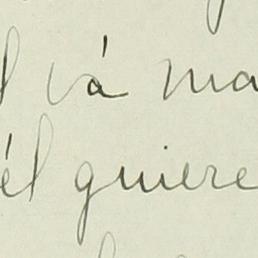 vá ma
él quiere